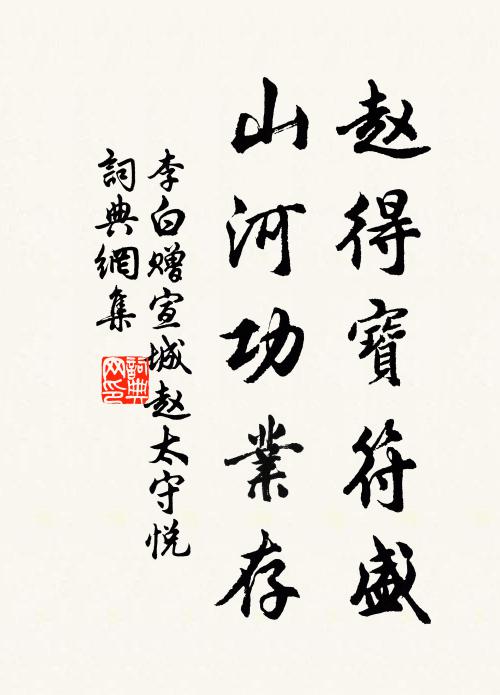 赵得寶符盛
山河功業存
李白赠宣城赵太守悦
詞典網集
詞典網印